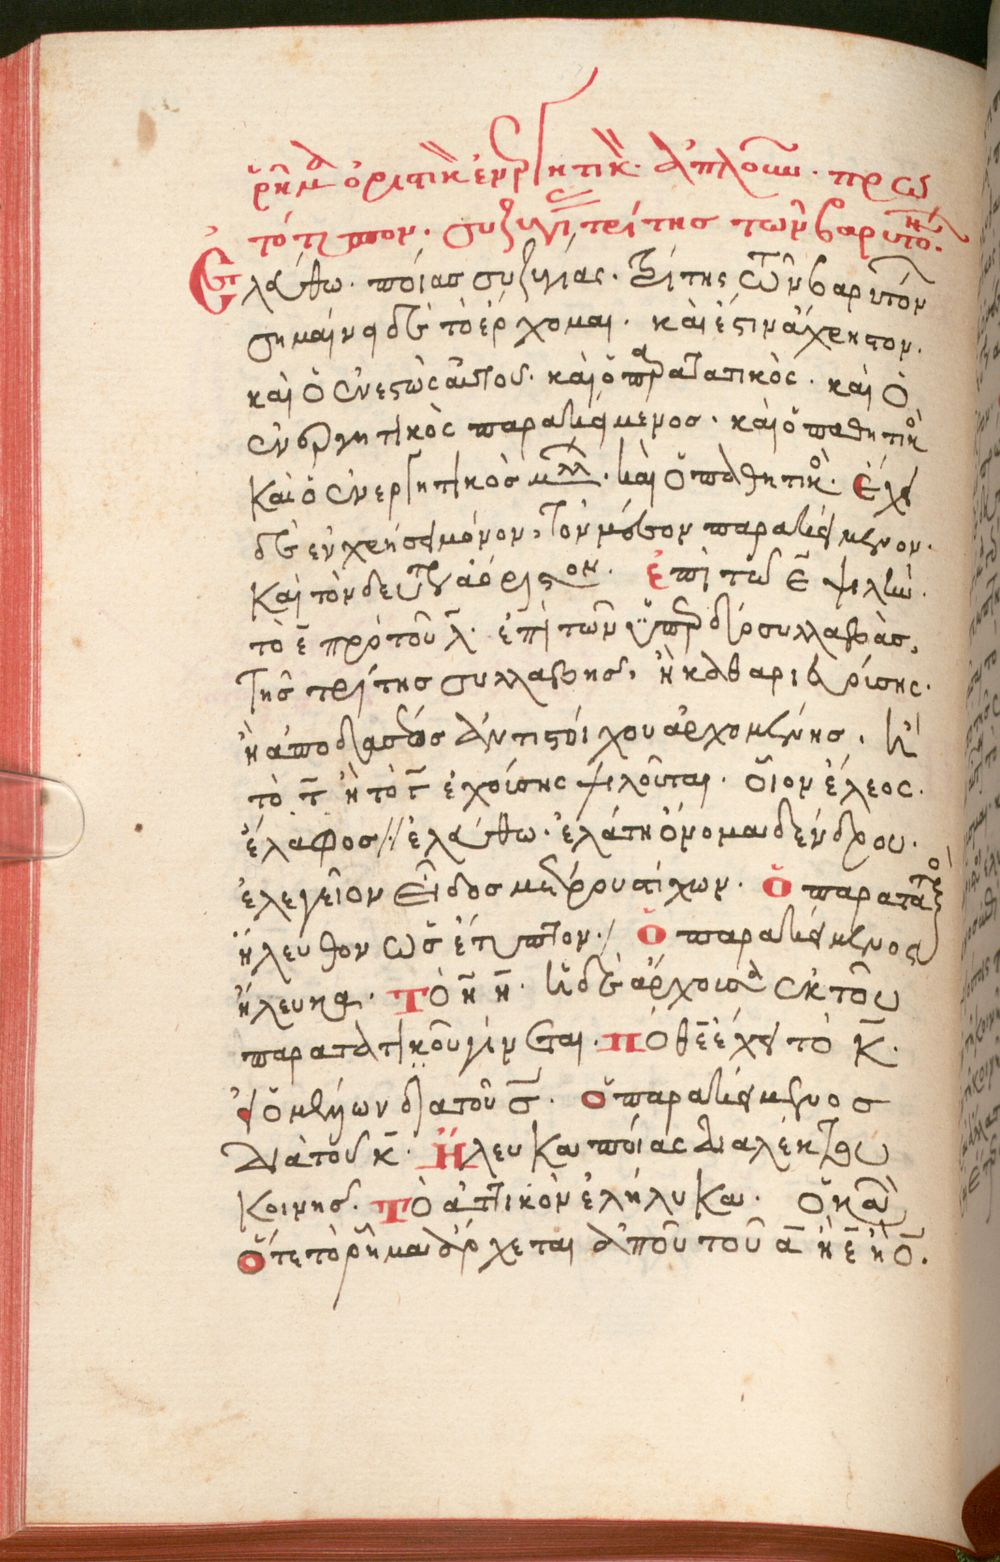 ῥῆμα ὁριστικὸν ἐνεργητικὸν· ἁπλοῦν· πρω
τότυπον· συζυγίας τρίτης τῶν βαρυτόνων.
Ἐλεύθω· ποίας συζυγίας· τρίτης τῶν βαρυτόν
σημαίνει δὲ τὸ ἔρχομαι· καὶ ἔστιν ἄχρηστον·
καὶ ὁ ἐνεστὼς αὐτοῦ· καὶ ὁ παρατατικὸς· καὶ ὁ
ἐνεργητικὸς παρακείμενος· καὶ ὁ παθητικὸς
καὶ ὁ ἐνεργητικὸς μέλλων· καὶ ὁ παθητικὸς· ἔχει
δὲ ἐν χρήσει μόνον, τὸν μέσον παρακείμενον·
καὶ τὸν δεύτερον ἀόριστον· ἐπὶ τῶ ε ψιλὼν·
τὸ ε πρὸ τοῦ λ· ἐπὶ τῶν ὑπὲρ δύο συλλαβὰς,
τῆς τρίτης συλλαβῆς, ἢ καθαριβρίσης·
ἢ ἀπὸ διαστάσεως ἀντιστοίχου ἀρχομένης· ἢ
τὸ τ ἢ τὸ γ ἐχοίσης ψιλοῦται· οἷον ἔλεος·
ἔλαφος// ἐλεύθω· ἐλάτη ὄνομα δένδρου·
ἐλεγεῖον εἶδος μέτρου στίχων· ὁ παρατατικὸς
ἤλευθον ὡς ἔτυπτον·/ ὁ παρακείμενος
ἤλευκα· τὸ η η· αἱ δὲ ἄρχουσαι ἐκ τοῦ
παρατατικοῦ γίνεται· πόθεν ἔχει τὸ κ·
εἰ ὁ μέλλων διὰ τοῦ σ· ὁ παρακείμενος
διὰ τοῦ κ· ἤλευκα ποίας διαλέκτου
κοινῆς· τὸ ἀττικὸν ἐλήλυκα· ὁ κανὼν
ὅτε τὸ ῥῆμα ἄρχεται ἀποῦ τοῦ α ἢ ε ἢ ο.